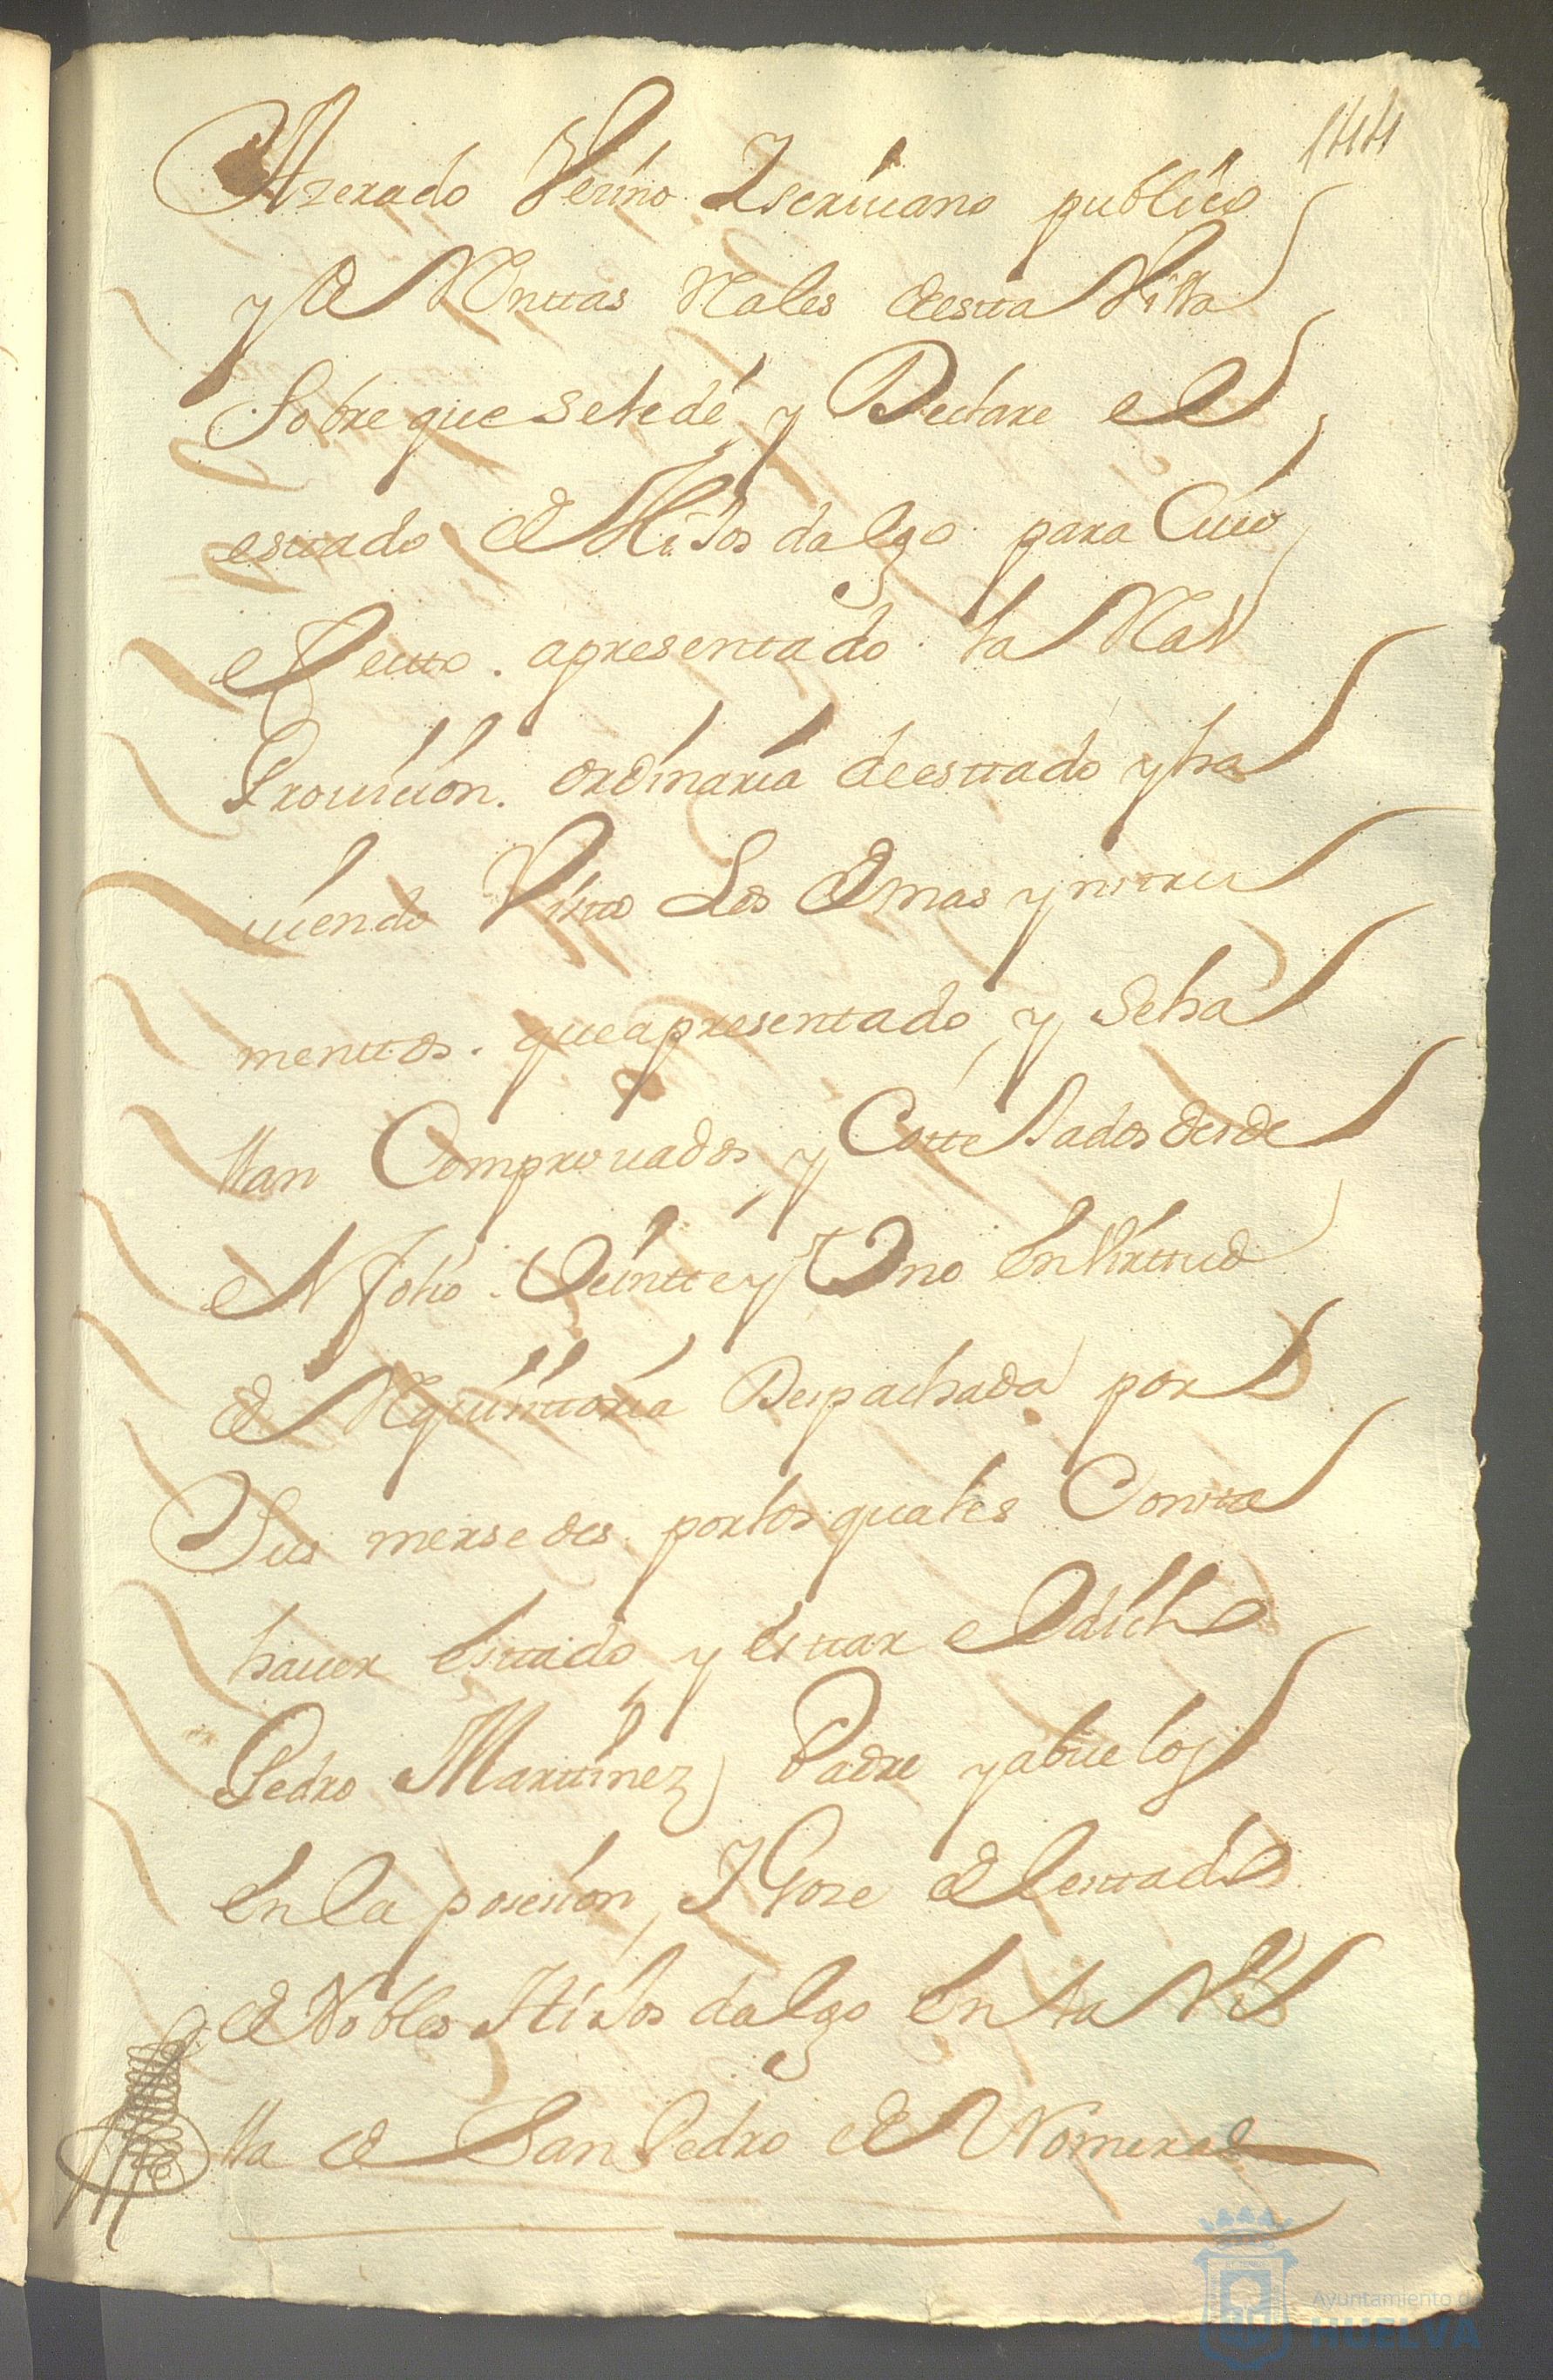 144
Azerado Vezino Escriuano publico
y de Renttas Rales de estta Villa
Sobre que se le dé y Declare el
esttado de Hijos dalgo para Cuio
efectto. apresenttado la Ral
Prouicion. ordinaria de esttado y ha
uiendo Visto Los demas ynstru
menttos. que apresenttado y Seha
llan Comprouados y Cottejados desde
el folio. Veintte y Uno en Virttud
de Requisittoria Despachada por
Sus mersedes. por los quales Consta
hauer Esttado y esttar el dicho
Pedro Marttinez Padre y abuelos
en la posesion, y Goze del esttado
de Nobles Hijos dalgo en la Vi
lla de San Pedro del Romeral
Ayuntamiento de
HUELVA